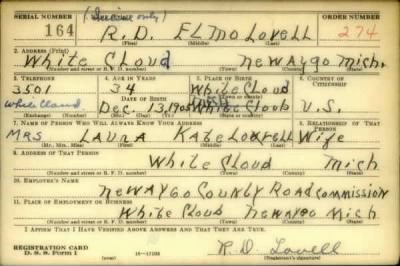 SERIAL NUMBER (Initials only) ORDER NUMBER
164 R. D. ELMO LOVELL 274
(First) (Middle) (Last)
2. ADDRESS (Print)
White Cloud Newaygo Mich.
(Number and street or R. F. D. number) (Town) (County) (State)
3. TELEPHONE 4. AGE IN YEARS 5. PLACE OF BIRTH 6. COUNTRY OF CITIZENSHIP
3501 34 White Cloud
DATE OF BIRTH (Town or county)
White Cloud Dec. 13, 1905 White Cloud U.S.
(Exchange) (Number) (Mo.) (Day) (Yr.) (State or country)
7. NAME OF PERSON WHO WILL ALWAYS KNOW YOUR ADDRESS 8. RELATIONSHIP OF THAT PERSON
MRS LAURA KATE LOVELL Wife
(Mr., Mrs., Miss) (First) (Middle) (Last)
9. ADDRESS OF THAT PERSON
White Cloud Mich
(Number and street or R. F. D. number) (Town) (County) (State)
10. EMPLOYER'S NAME
Newaygo County Road Commission
11. PLACE OF EMPLOYMENT OR BUSINESS
White Cloud Newaygo Mich
(Number and street or R. F. D. number) (Town) (County) (State)
I AFFIRM THAT I HAVE VERIFIED ABOVE ANSWERS AND THAT THEY ARE TRUE.
REGISTRATION CARD R. D. Lovell
D. S. S. Form 1 16—17105 (Registrant's signature)